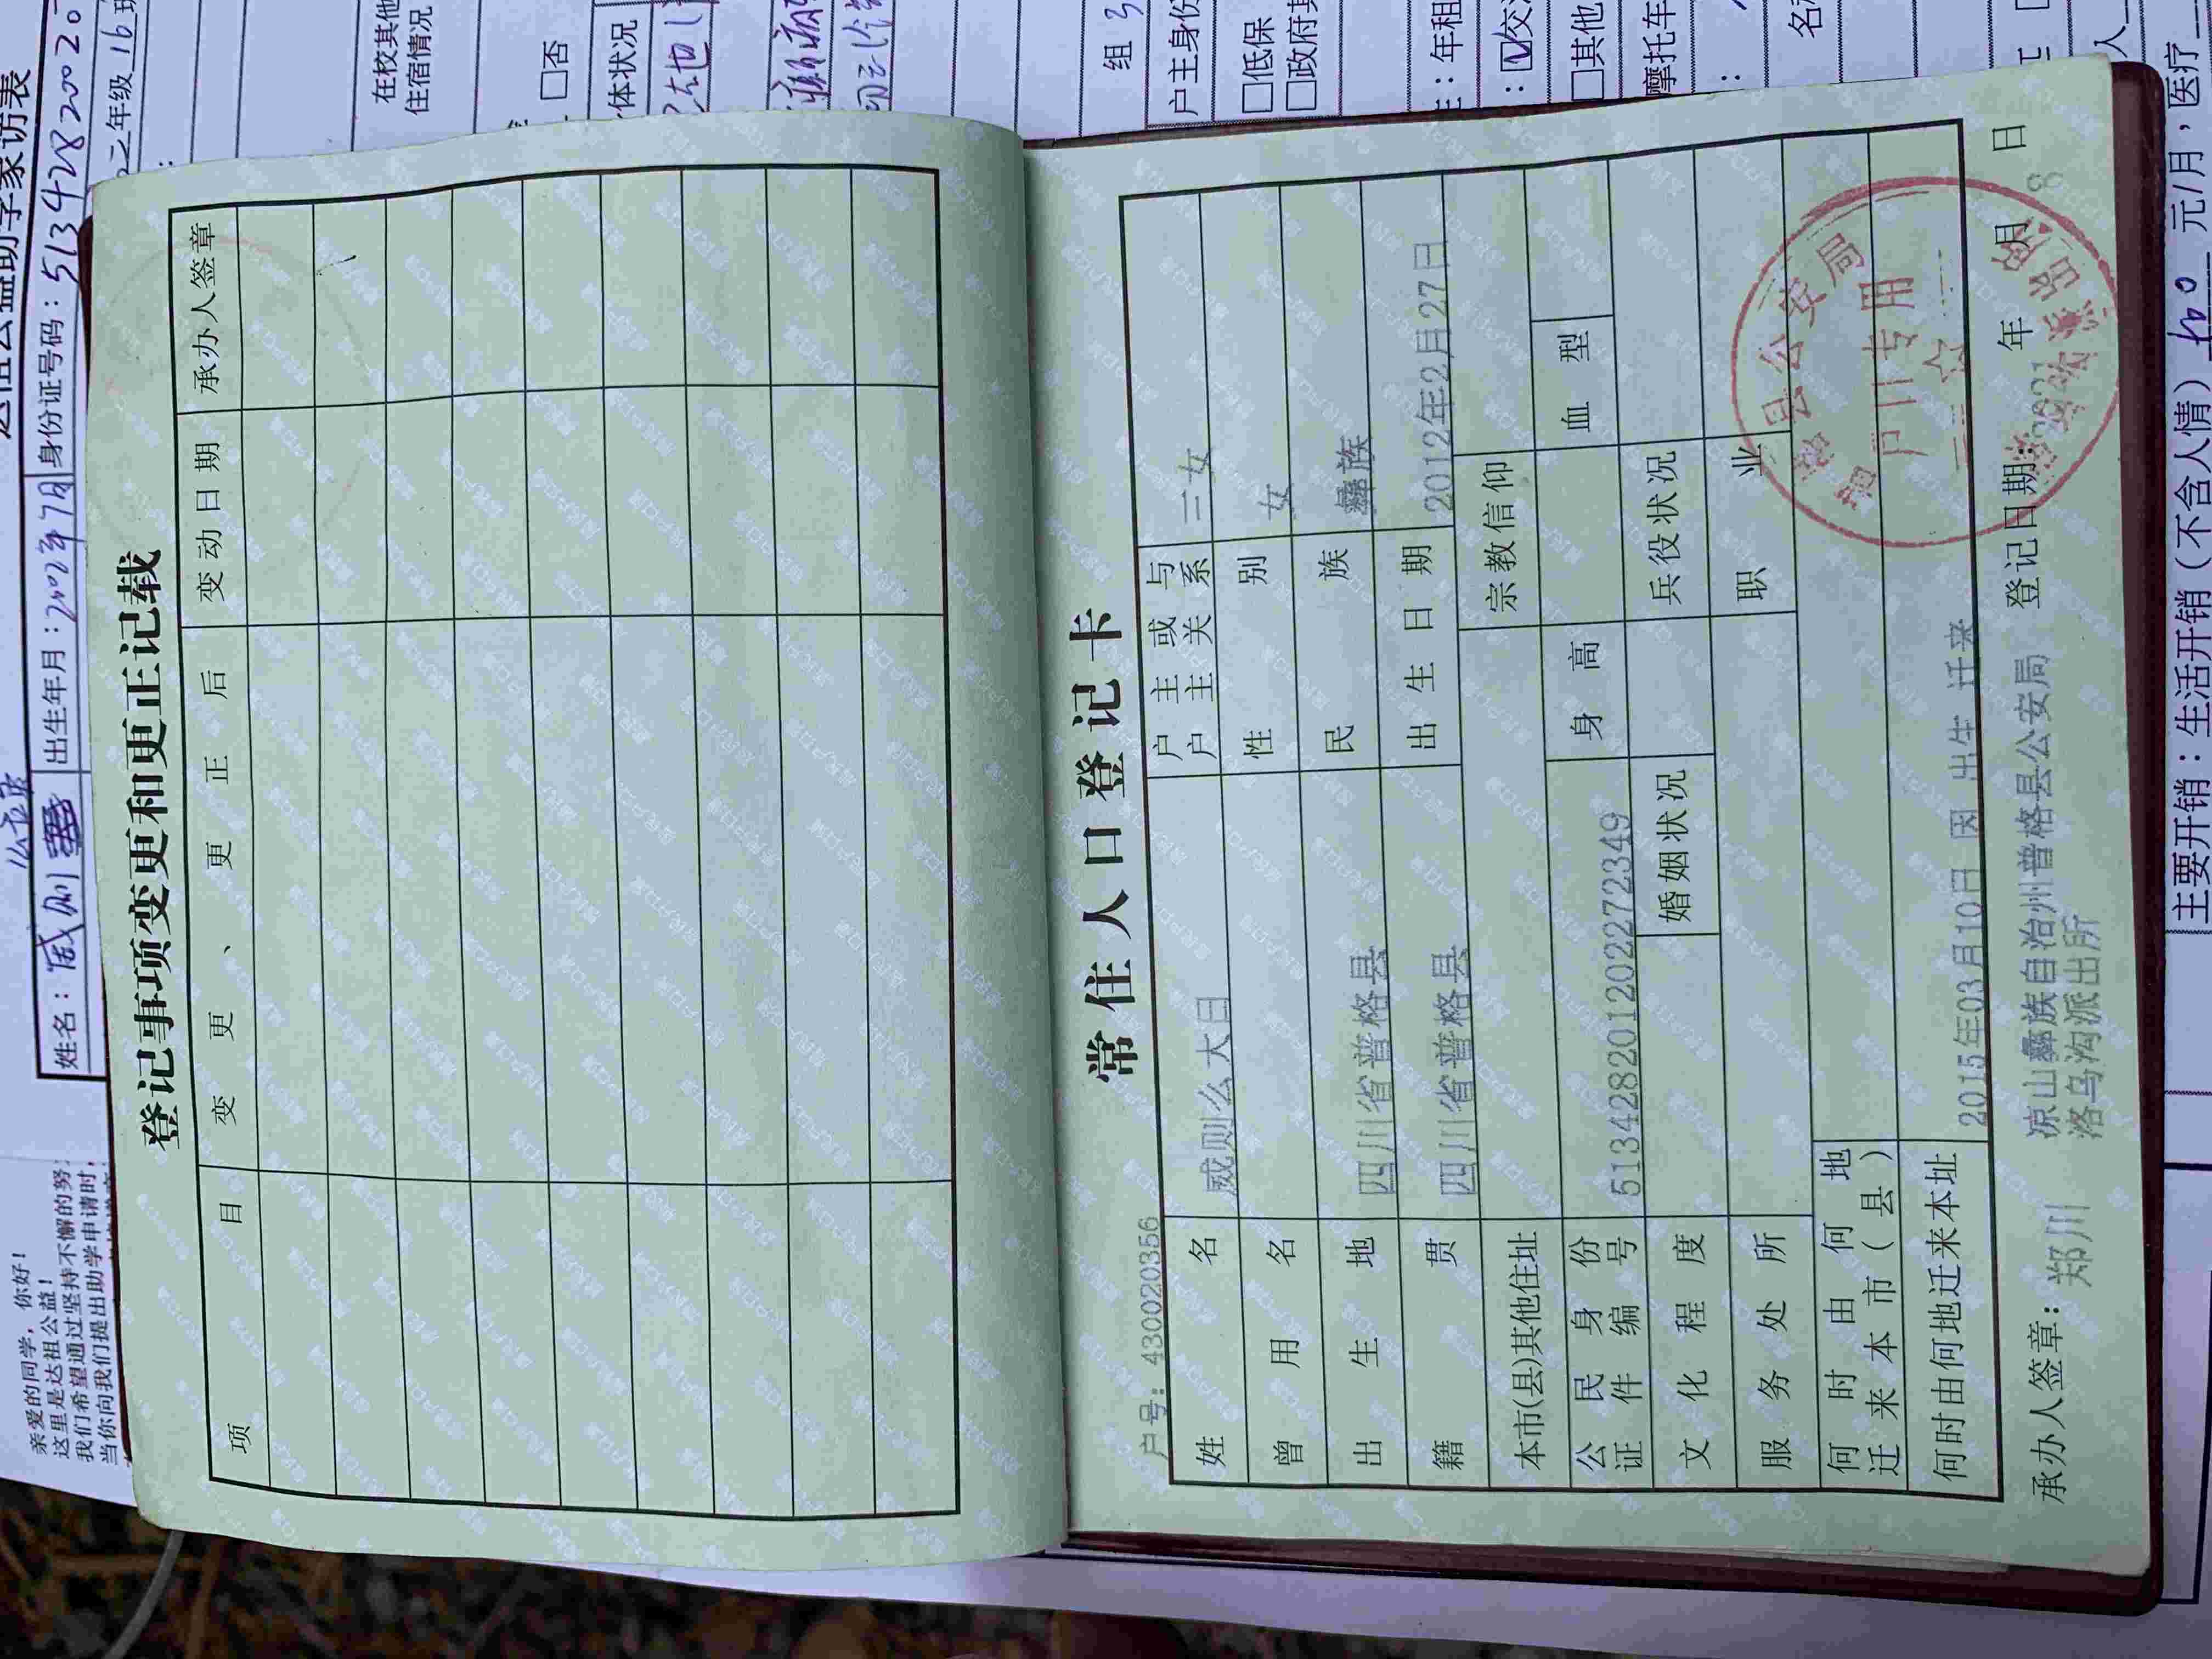 亲爱的同学，你好！
这里是达祖公益！
我们希望通过坚持不懈的努
当你向我们提出助学申请时，
助学家访表
姓名：威则
出生年月：
身份证号码：51342820020
年级 16 班
在校其他
住宿情况
□否
体状况
组 3
户主身份
□低保
□政府
：年租
□其他
摩托车
登记事项变更和更正记载
项 目 变 更 、 更 正 后 变动日期 承办人签章
常住人口登记卡
户号：430020356
姓 名 威则么大日 户主或与户主关系 二女
曾 用 名 性 别 女
出 生 地 四川省普格县 民 族 彝族
籍 贯 四川省普格县 出生日期 2012年2月27日
本市(县)其他住址 宗教信仰
公民身份证件编号 513428201202272349 身高 血型
文化程度 婚姻状况 兵役状况
服务处所 职业
何时由何地迁来本市(县)
何时由何地迁来本址 2015年03月10日 因 出生 迁来
凉山彝族自治州普格县公安局
洛乌沟派出所
承办人签章：郑川 登记日期： 年 月 日
县公安局
户口专用
主要开销：生活开销（不含人情） 元/月，医疗